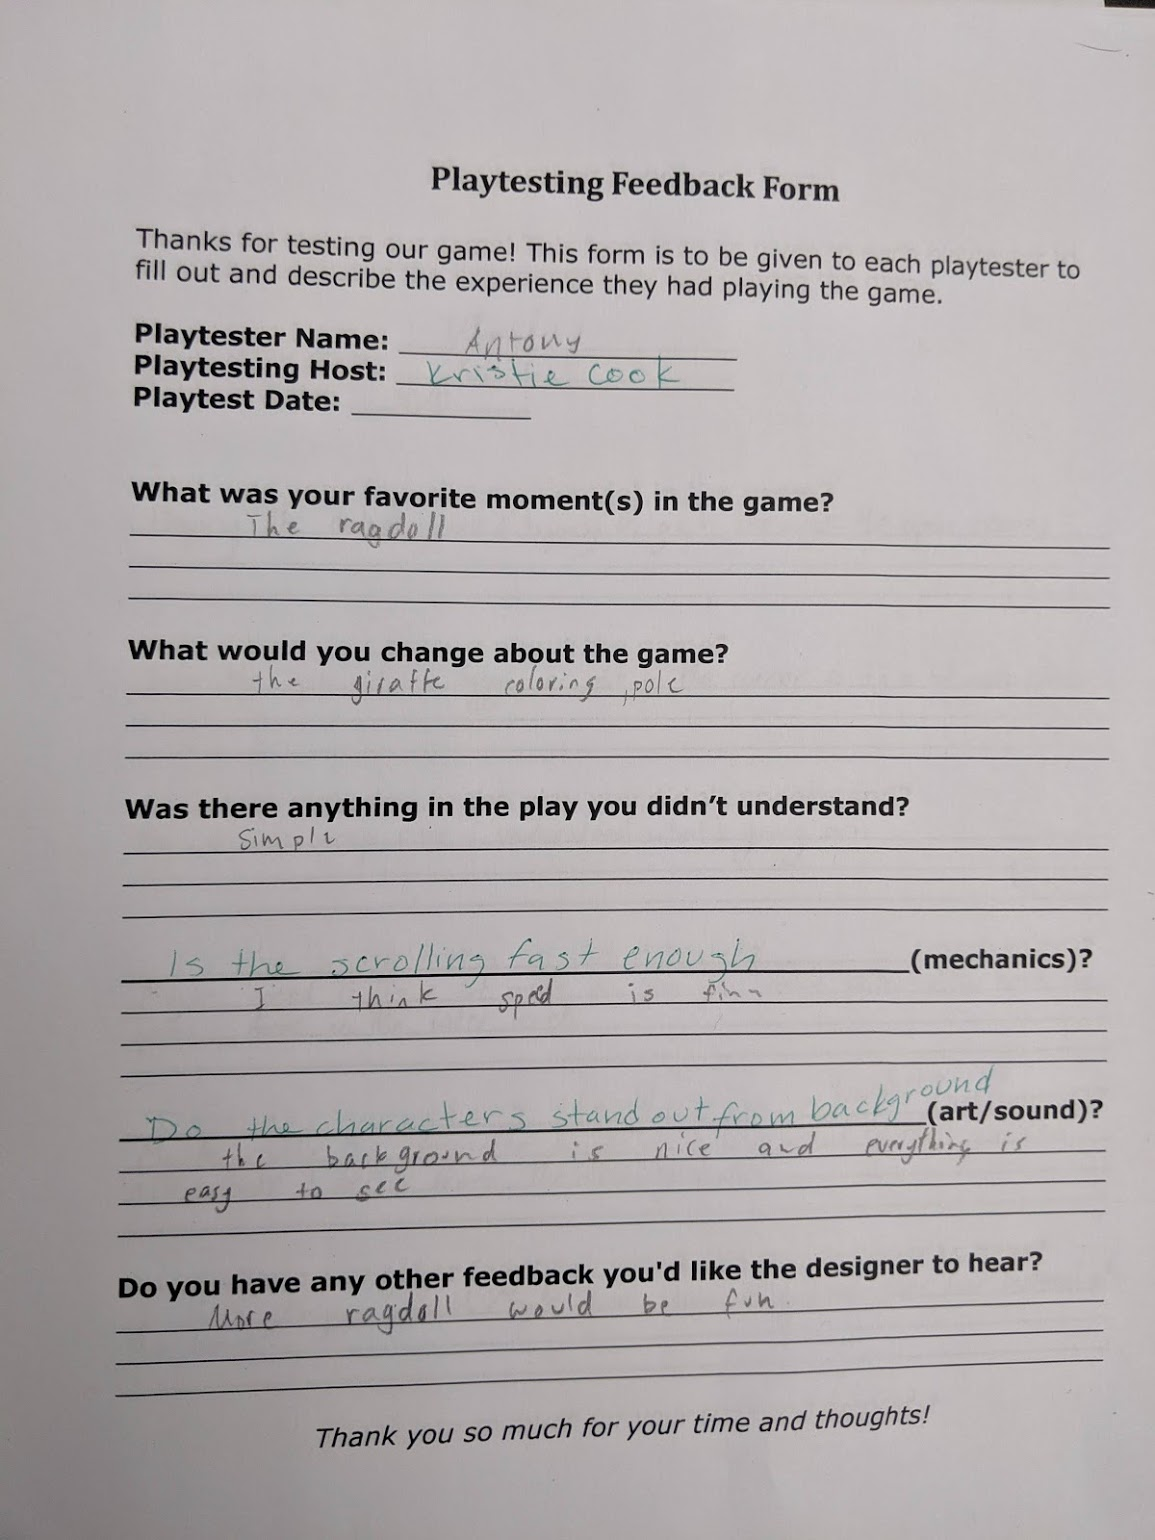 Playtesting Feedback Form
Thanks for testing our game! This form is to be given to each playtester to
fill out and describe the experience they had playing the game.
Playtester Name: Antony
Playtesting Host: Kristie Cook
Playtest Date:
What was your favorite moment(s) in the game?
The ragdoll
What would you change about the game?
the giraffe coloring, pole
Was there anything in the play you didn't understand?
Simple
Is the scrolling fast enough (mechanics)?
I think speed is fine
Do the characters stand out from background (art/sound)?
the background is nice and everything is
easy to see
Do you have any other feedback you'd like the designer to hear?
More ragdoll would be fun.
Thank you so much for your time and thoughts!